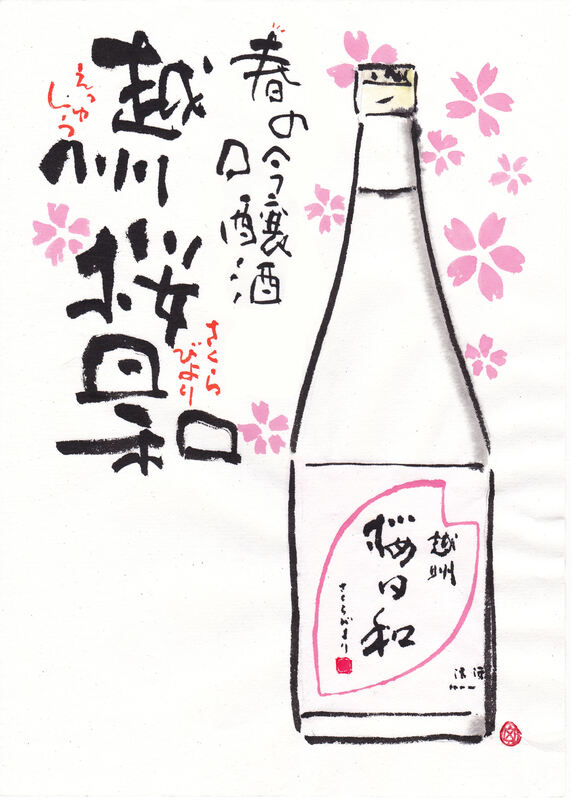 春の吟醸酒
越州 桜日和
えっしゅう
さくらびより
越州
桜日和
さくらびより
清酒